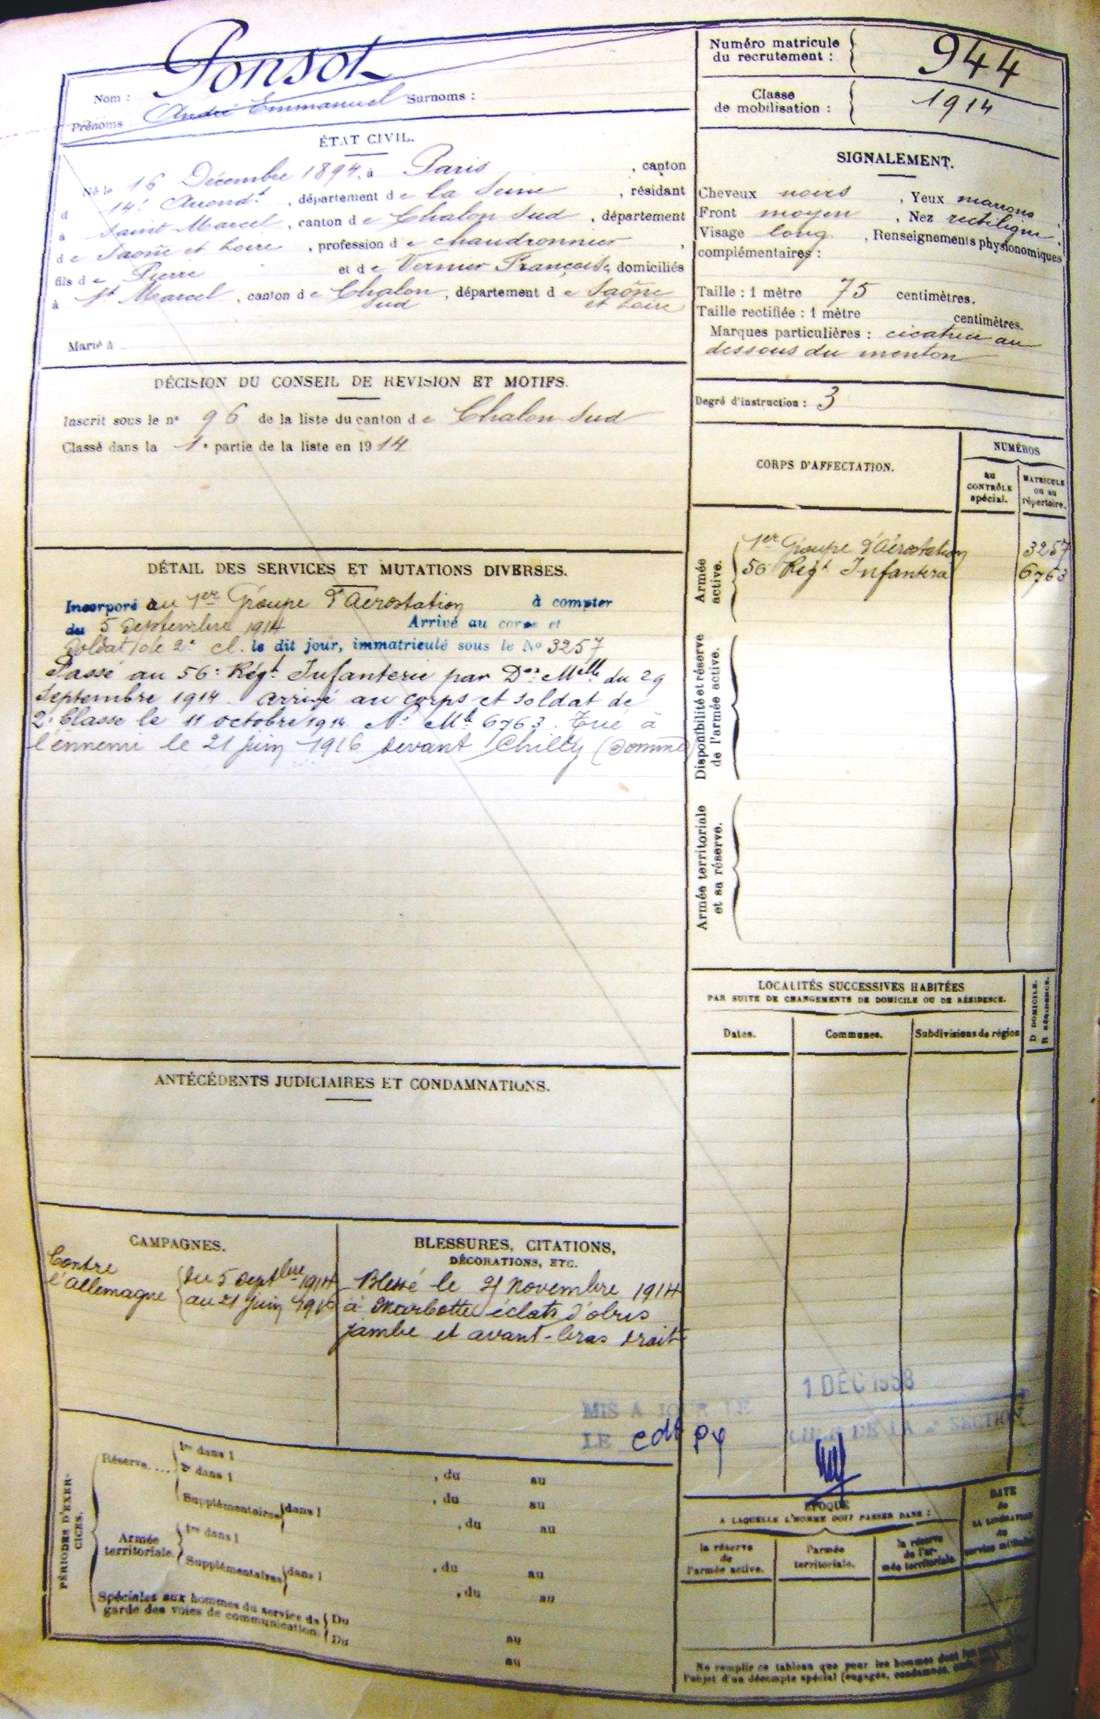 Ponsot
Nom :
André Emmanuel Surnoms :
Prénoms
ÉTAT CIVIL.
Né le 16 Décembre 1894, à Paris , canton
d 14e Arrondt , département de la Seine , résidant
à Saint Marcel , canton de Chalon Sud , département
de Saône et Loire , profession de chaudronnier ,
fils de Pierre et de Vernier Françoise, domiciliés
à St Marcel , canton de Chalon Sud , département de Saône et Loire
Marié à
DÉCISION DU CONSEIL DE REVISION ET MOTIFS.
Inscrit sous le n° 96 de la liste du canton de Chalon Sud
Classé dans la 1e partie de la liste en 1914
DÉTAIL DES SERVICES ET MUTATIONS DIVERSES.
Incorporé au 1er Groupe d'Aérostation à compter
du 5 Septembre 1914 Arrivé au corps et
Soldat de 2e cl. le dit jour, immatriculé sous le No 3257
Passé au 56e Régt Infanterie par Don Mlle du 29
Septembre 1914. Arrivé au corps et Soldat de
2e Classe le 11 octobre 1914 No Mle 6763. Tué à
l'ennemi le 21 juin 1916 devant Chilly (Somme)
ANTÉCÉDENTS JUDICIAIRES ET CONDAMNATIONS.
CAMPAGNES.
Contre l'Allemagne
du 5 Septbre 1914
au 21 juin 1916
BLESSURES, CITATIONS,
DÉCORATIONS, ETC.
Blessé le 21 Novembre 1914
à Marbotte éclats d'obus
jambe et avant-bras droit
PÉRIODES D'EXERCICES.
Réserve....
1re dans l , du au
2e dans l , du au
Supplémentaires dans l , du au
Armée territoriale.
1re dans l
Supplémentaires dans l , du au
, du au
Spéciales aux hommes du service de
garde des voies de communication.
Du au
Du au
Numéro matricule
du recrutement : 944
Classe
de mobilisation : 1914
SIGNALEMENT.
Cheveux noirs , Yeux marrons
Front moyen , Nez rectiligne.
Visage long , Renseignements physionomiques
complémentaires :
Taille : 1 mètre 75 centimètres.
Taille rectifiée : 1 mètre centimètres.
Marques particulières : cicatrice au
dessous du menton
Degré d'instruction : 3
CORPS D'AFFECTATION.
NUMÉROS
au
CONTRÔLE
spécial.
MATRICULE
ou au
répertoire.
Armée
active.
1er Groupe d'Aérostation 3257
56 Régt Infanterie 6763
Disponibilité et réserve
de l'armée active.
Armée territoriale
et sa réserve.
LOCALITÉS SUCCESSIVES HABITÉES
PAR SUITE DE CHANGEMENTS DE DOMICILE OU DE RÉSIDENCE.
D DOMICILE.
R RÉSIDENCE.
Dates.
Communes.
Subdivisions de région
1 DEC 1958
MIS A JOUR LE
LE
DE LA SECTION
ÉPOQUE
A LAQUELLE L'HOMME DOIT PASSER DANS :
la réserve
de
l'armée active.
l'armée
territoriale.
la réserve
de l'armée territoriale.
DATE
de
LA LIBÉRATION
du
service militaire.
Ne remplir ce tableau que pour les hommes dont
l'objet d'un décompte spécial (engagés, condamnés,